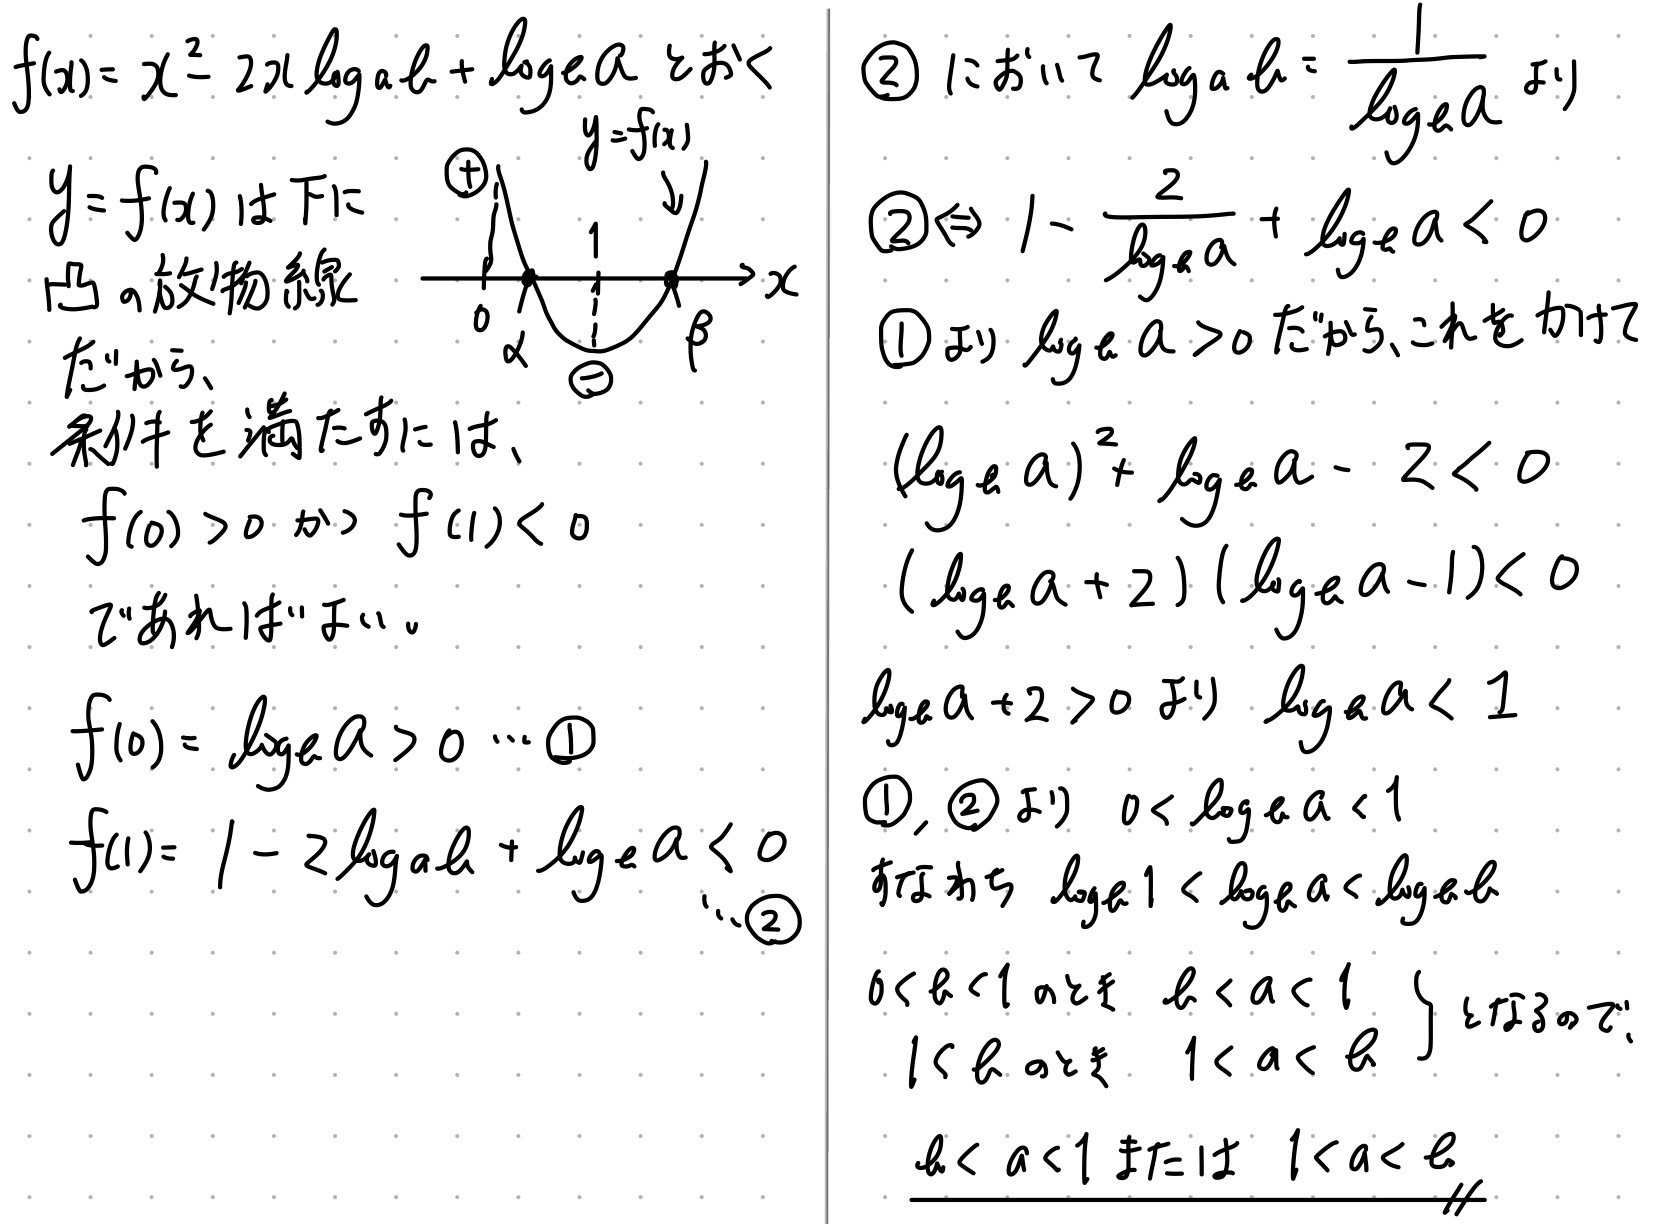 f(x) = x² - 2x log_a b + log_b a とおく
y = f(x)
y = f(x) は下に
凸の放物線
だから、
+ 1 x
0 α β
−
条件を満たすには、
f(0) > 0 かつ f(1) < 0
であればよい。
f(0) = log_b a > 0 … ①
f(1) = 1 - 2 log_a b + log_b a < 0
… ②
② において log_a b = 1/log_b a より
② ⇔ 1 - 2/log_b a + log_b a < 0
① より log_b a > 0 だから、これをかけて
(log_b a)² + log_b a - 2 < 0
(log_b a + 2)(log_b a - 1) < 0
log_b a + 2 > 0 より log_b a < 1
①, ② より 0 < log_b a < 1
すなわち log_b 1 < log_b a < log_b b
0 < b < 1 のとき b < a < 1
1 < b のとき 1 < a < b } となるので、
b < a < 1 または 1 < a < b